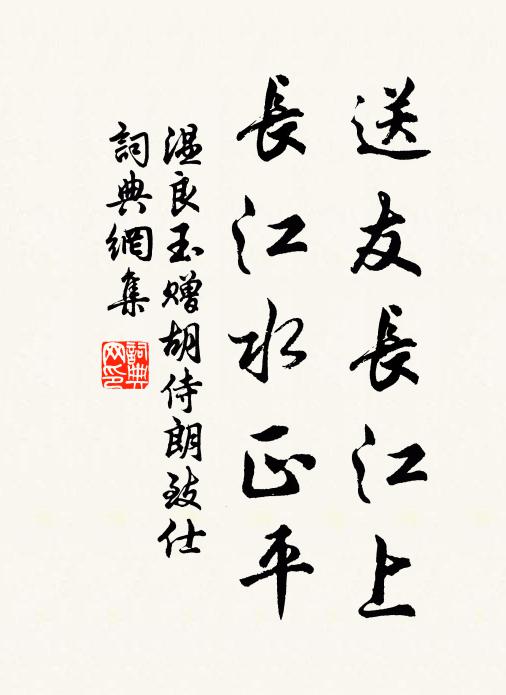 送友長江上
長江水正平
溫良玉贈胡侍朗致仕
詞典網集
詞典
网印